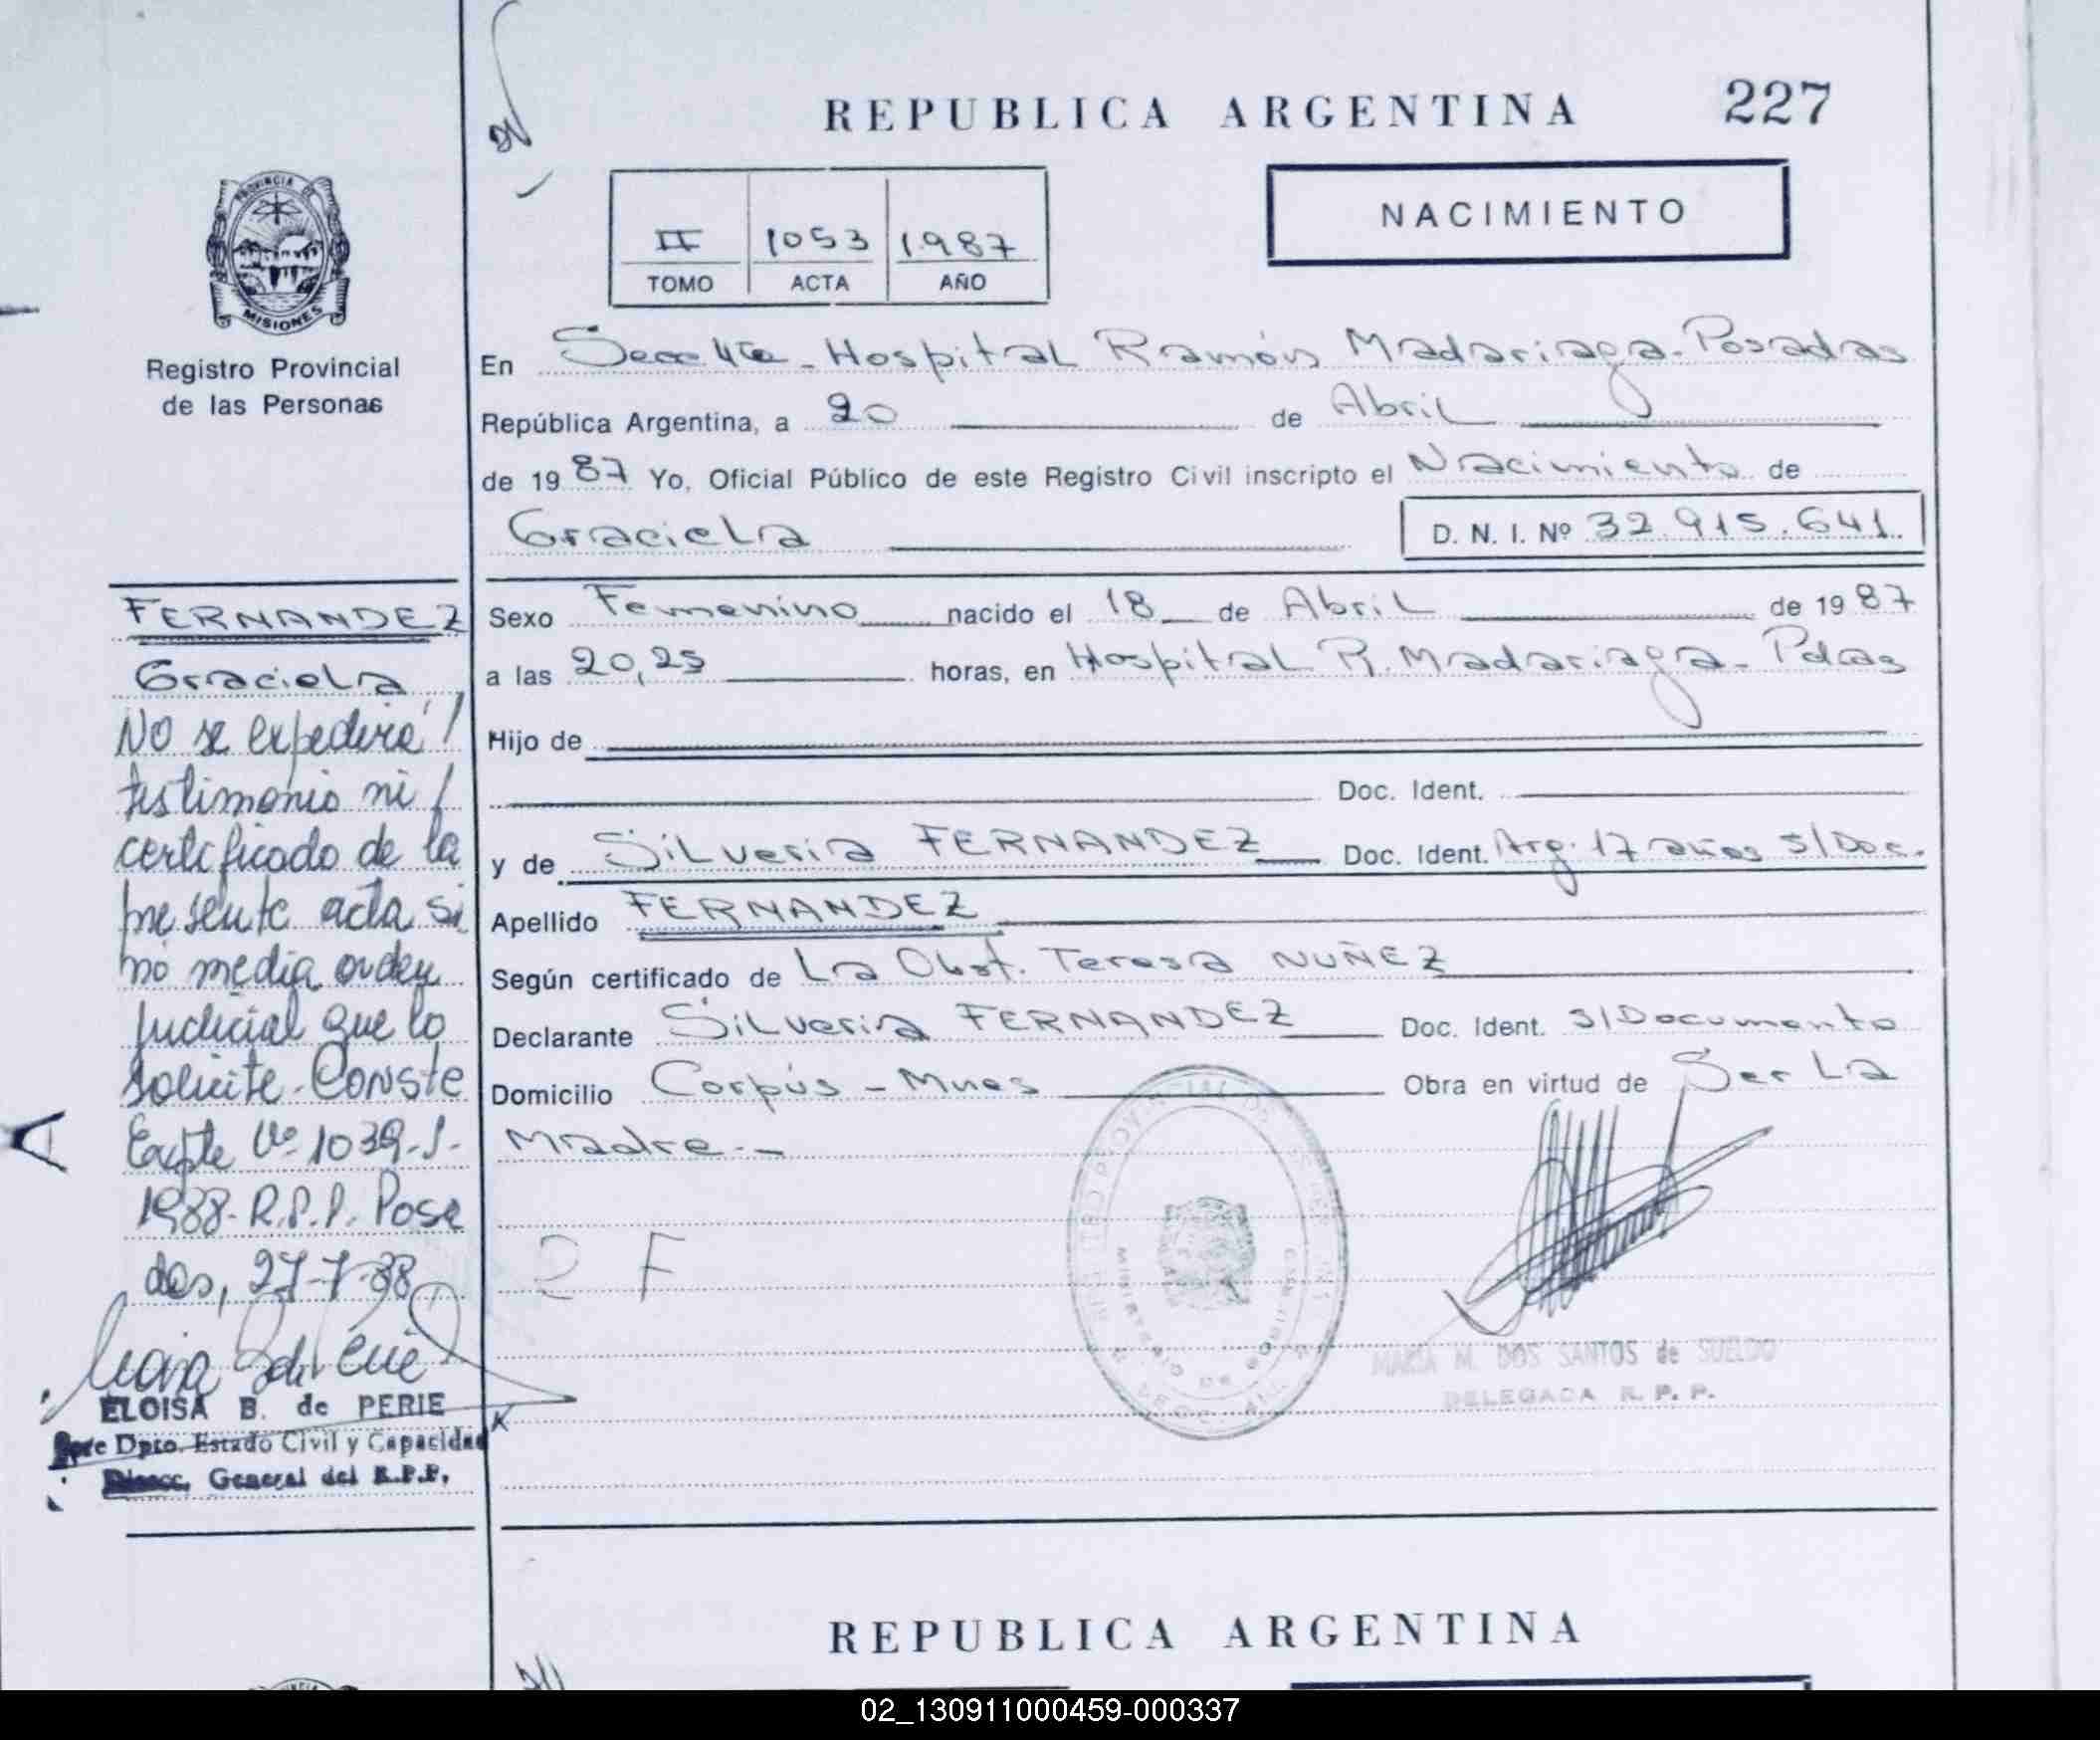 REPUBLICA ARGENTINA 227
NACIMIENTO
II 1053 1987
TOMO ACTA AÑO
PROVINCIA DE
MISIONES
Registro Provincial
de las Personas
En Secc 4ta - Hospital Ramón Madariaga - Posadas
República Argentina, a 20 de Abril
de 19 87 Yo, Oficial Público de este Registro Civil inscripto el Nacimiento de
Graciela D. N. I. Nº 32.915.641.
FERNANDEZ
Graciela
No se expedirá
testimonio ni
certificado de la
presente acta si
no media orden
Judicial que lo
solicite - Conste
Expte Nº 1039-J-
1988 - R.P.P. Posa
das, 27-7-88
ELOISA B. de PERIE
Dpto. Estado Civil y Capacidad
Direcc. General del R.P.P.
Sexo Femenino nacido el 18 de Abril de 19 87
a las 20,25 horas, en Hospital R. Madariaga - Pdas
Hijo de
Doc. Ident.
y de Silveria FERNANDEZ Doc. Ident. Arg. 17 años S/Doc.
Apellido FERNANDEZ
Según certificado de La Obst. Teresa NUÑEZ
Declarante Silveria FERNANDEZ Doc. Ident. S/Documento
Domicilio Corpús - Mnes Obra en virtud de Ser La
Madre.-
2 F
MARIA M. DOS SANTOS de SUELDO
DELEGADA R. P. P.
REPUBLICA ARGENTINA
02_130911000459-000337